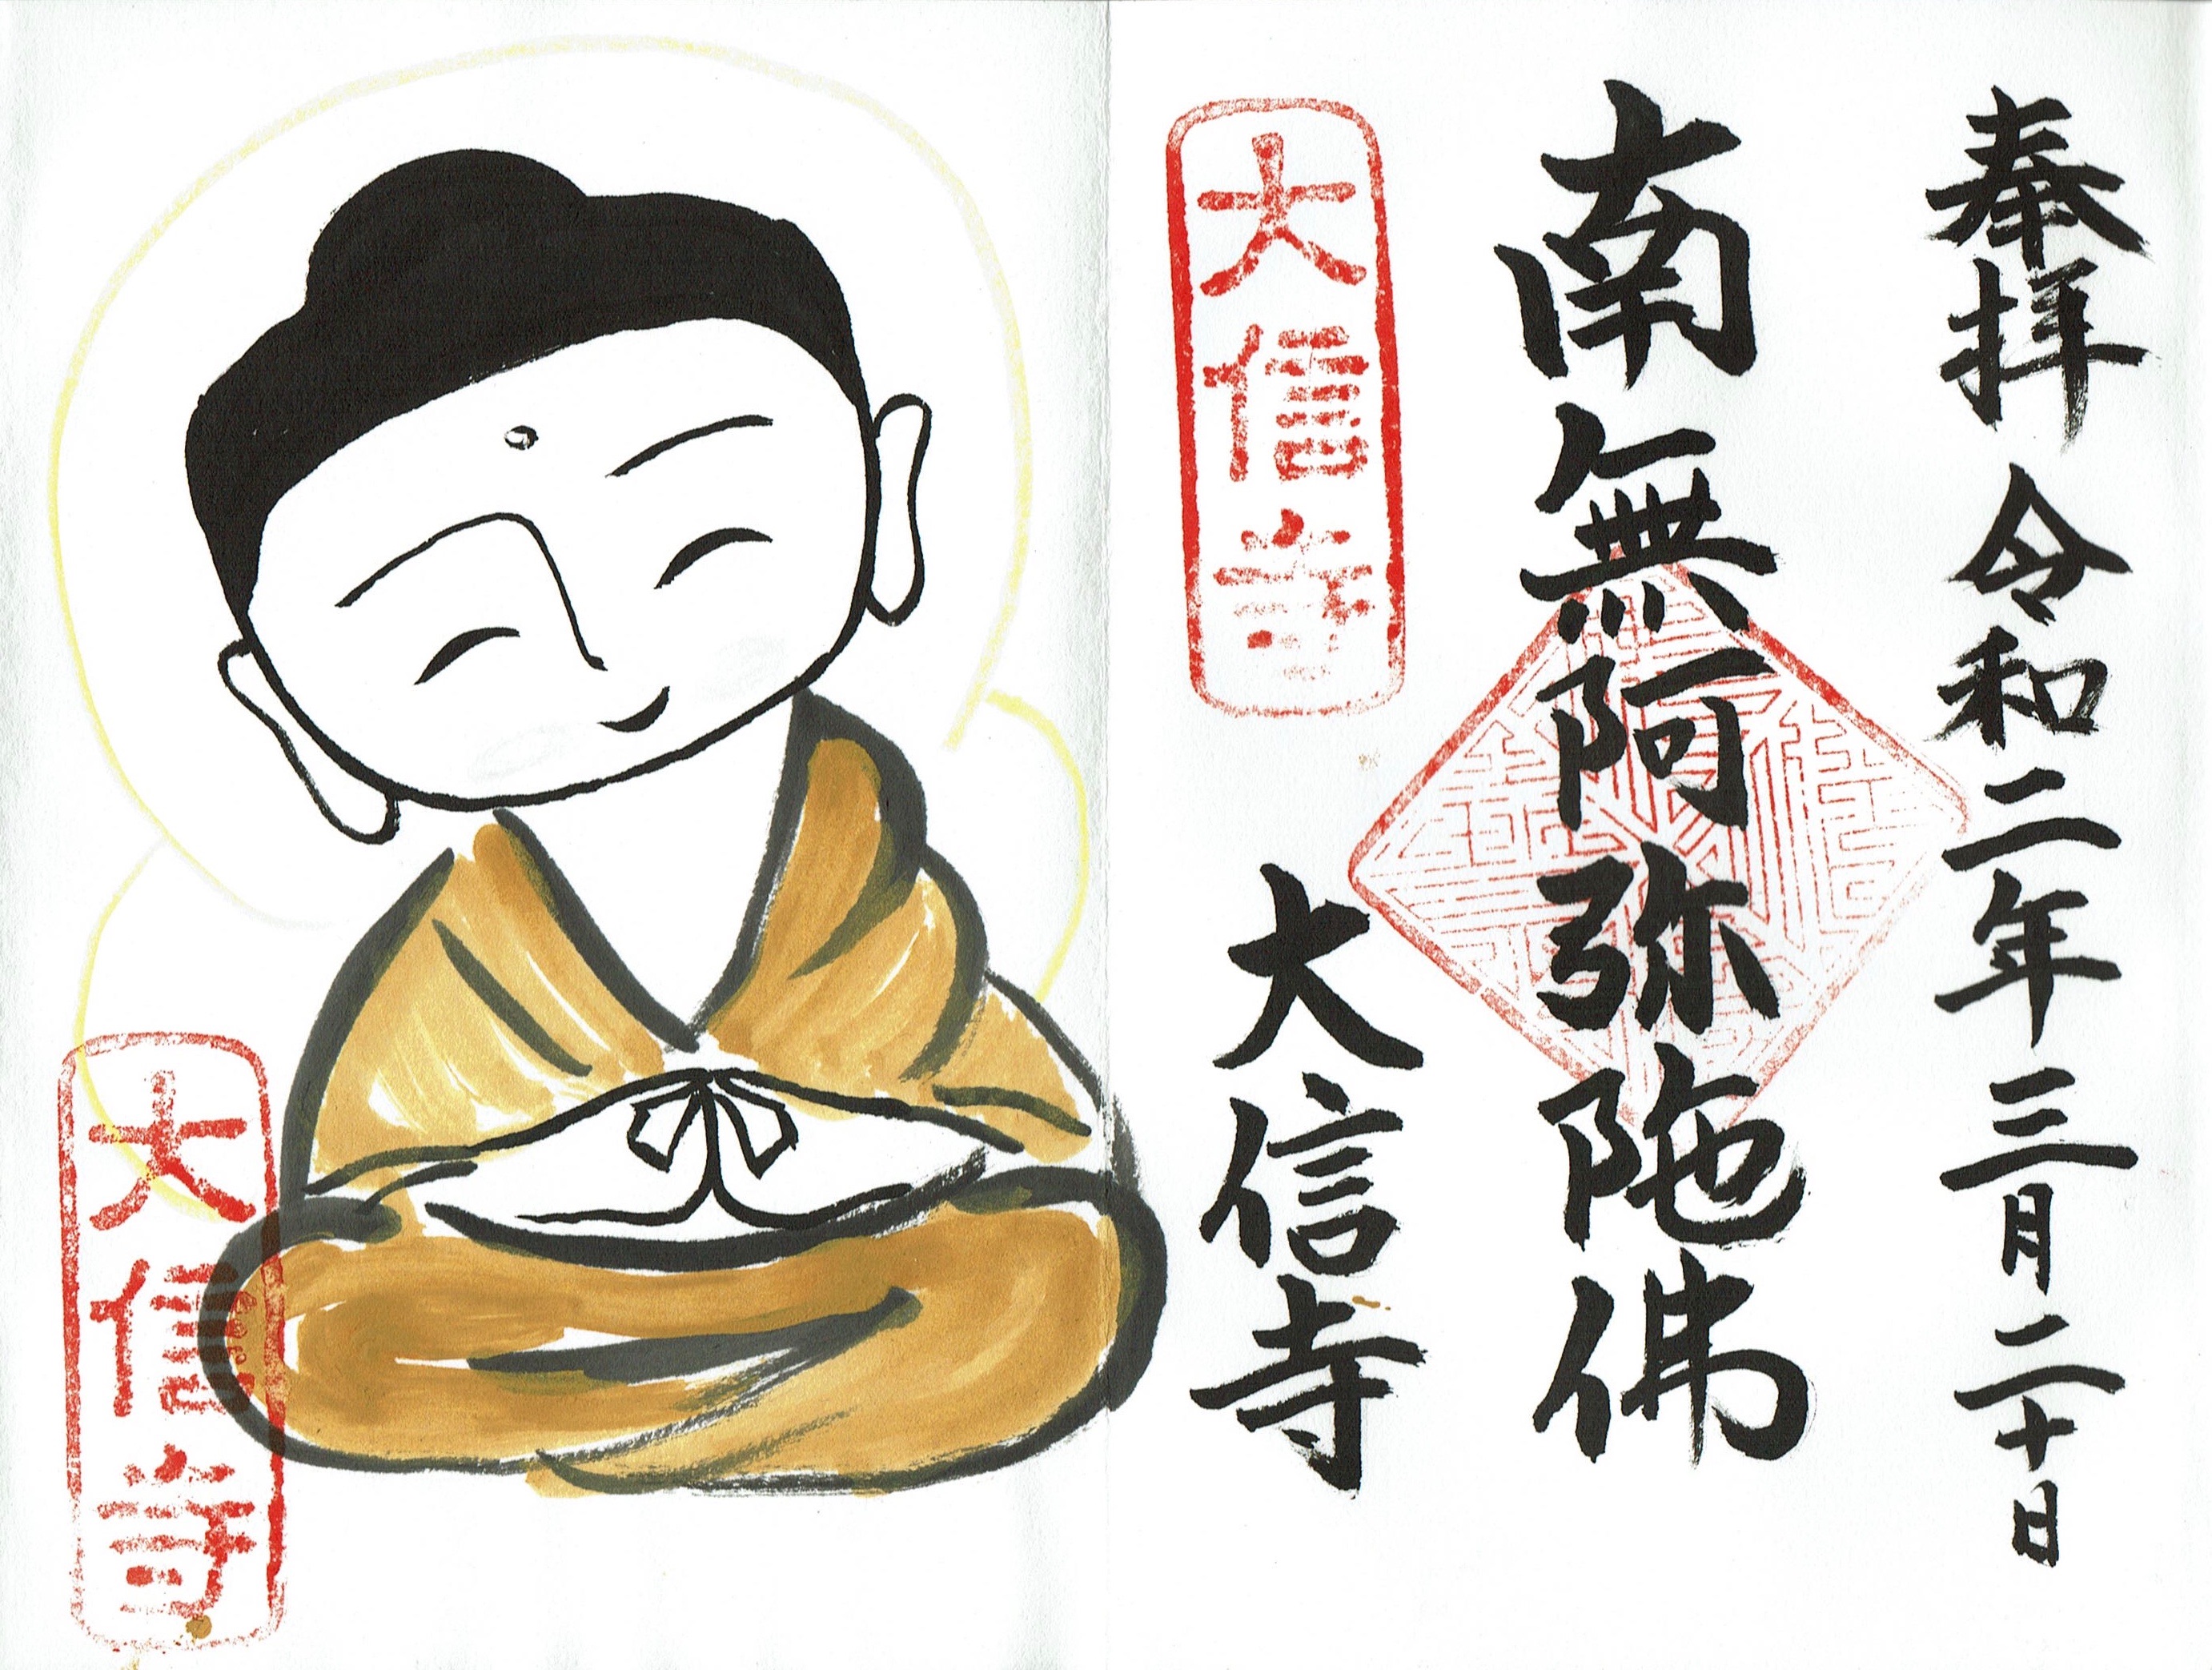 奉拝 令和二年三月二十日
南無阿弥陀佛
大信寺
大信寺
大信寺